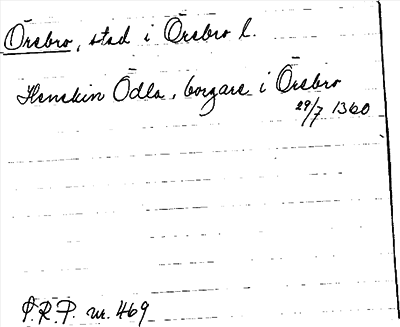 Örebro, stad i Örebro l.
Henskin Ödla, borgare i Örebro
29/7 1360
S.R.P. nr. 469